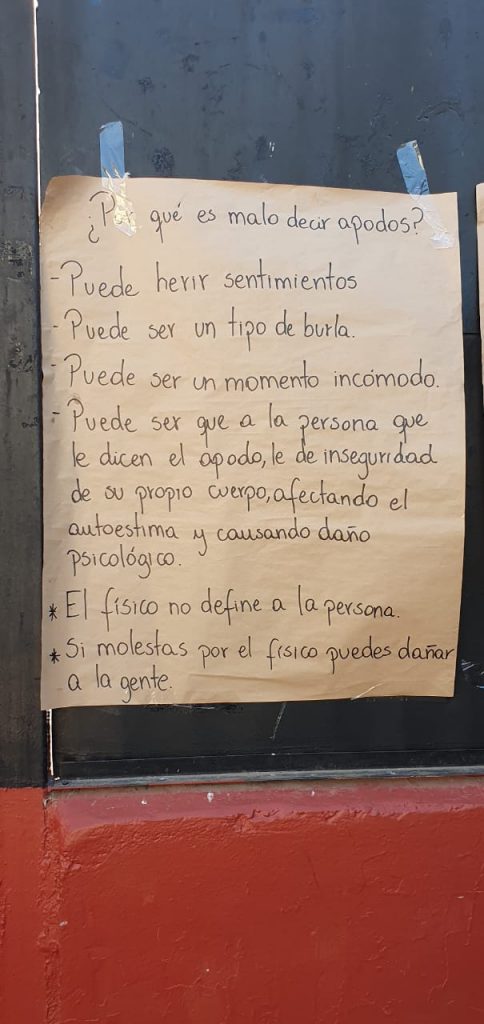 ¿Por qué es malo decir apodos?
- Puede herir sentimientos
- Puede ser un tipo de burla.
- Puede ser un momento incómodo.
- Puede ser que a la persona que
le dicen el apodo, le de inseguridad
de su propio cuerpo, afectando el
autoestima y causando daño
psicológico.
* El físico no define a la persona.
* Si molestas por el físico puedes dañar
a la gente.